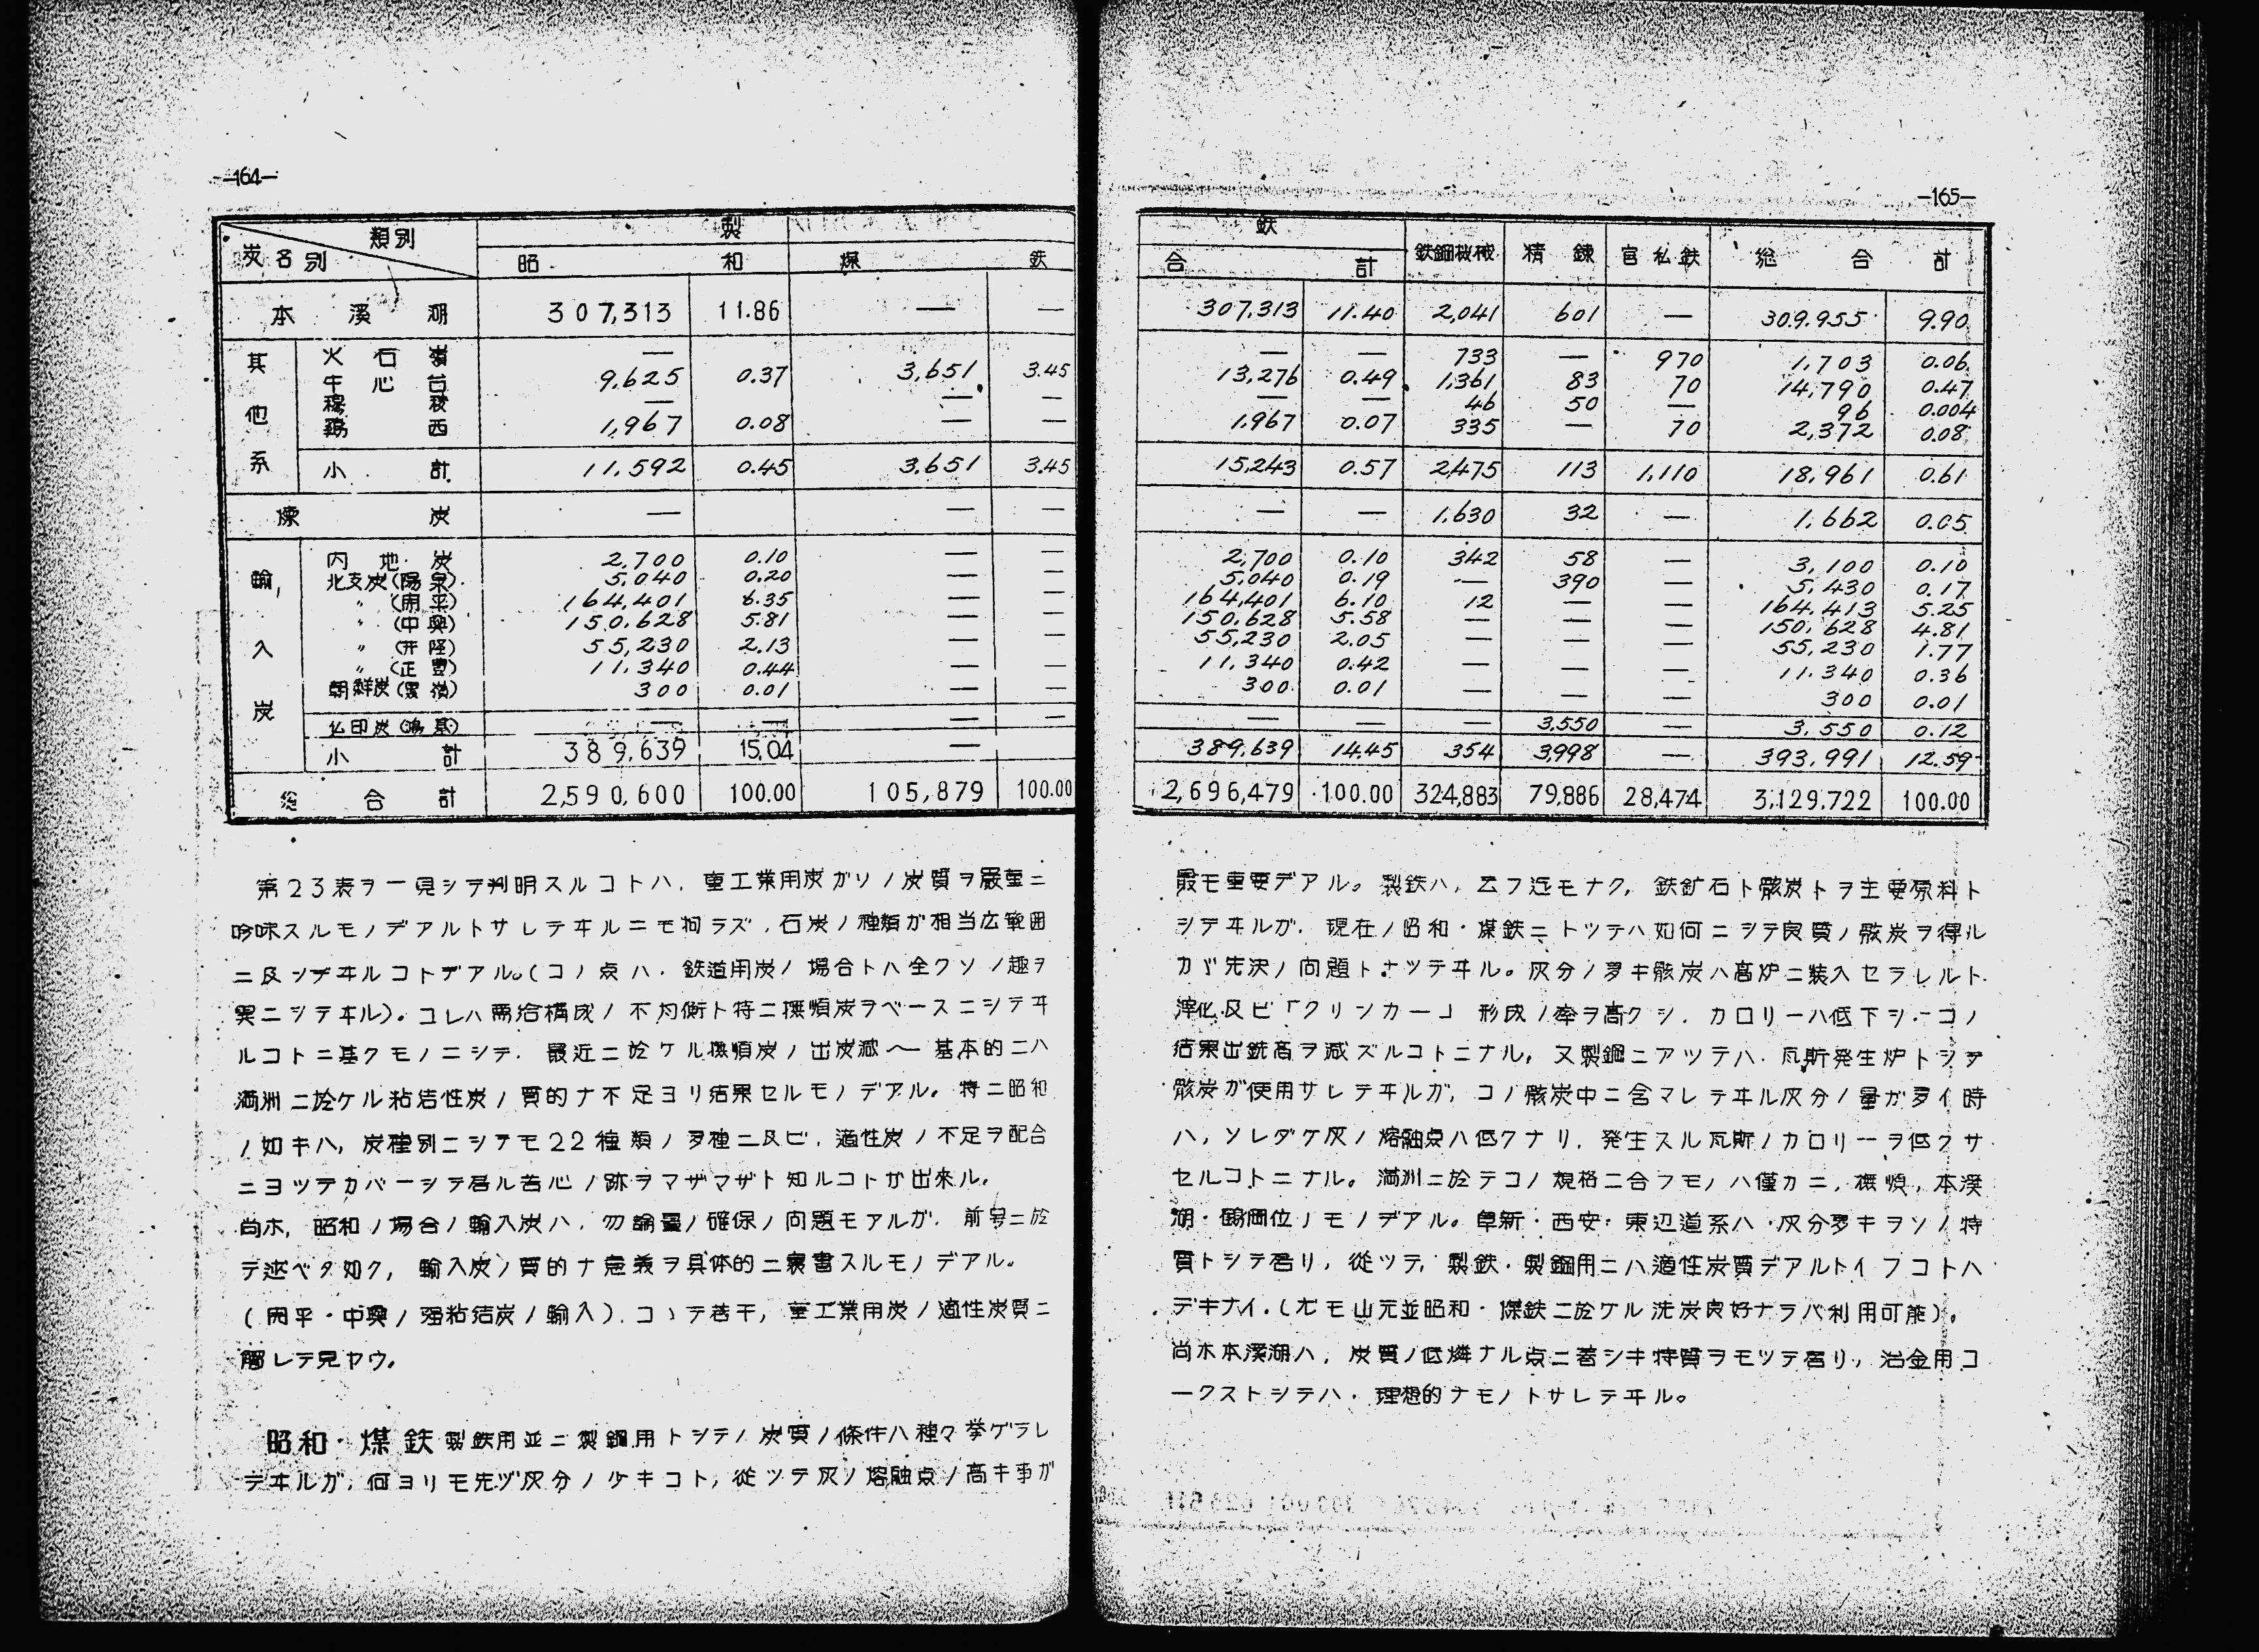 —164—
類別
炭名別
製
昭和 煤鉄
本溪湖 307,313 11.86 — —
其他系
火石嶺 —
牛心台 9,625 0.37 3,651 3.45
穆稜 — — —
鶏西 1,967 0.08 — —
小計 11,592 0.45 3,651 3.45
煉炭 — — —
輸入炭
内地炭 2,700 0.10 — —
北支炭(陽泉) 5,040 0.20 — —
〃(開平) 164,401 6.35 — —
〃(中興) 150,628 5.81 — —
〃(井陘) 55,230 2.13 — —
〃(正豊) 11,340 0.44 — —
朝鮮炭 300 0.01 — —
仏印炭(鴻基) — — — —
小計 389,639 15.04 —
総合計 2,590,600 100.00 105,879 100.00
第23表ヲ一見シテ判明スルコトハ、重工業用炭ガソノ炭質ヲ厳重ニ
吟味スルモノデアルトサレテヰルニモ拘ラズ、石炭ノ種類が相当広範囲
ニ及ンデヰルコトデアル。(コノ点ハ、鉄道用炭ノ場合トハ全クソノ趣ヲ
異ニシテヰル)。コレハ需給構成ノ不均衡ト特ニ撫順炭ヲベースニシテヰ
ルコトニ基クモノニシテ、最近ニ於ケル撫順炭ノ出炭減〜基本的ニハ
満洲ニ於ケル粘結性炭ノ質的ナ不足ヨリ結果セルモノデアル。特ニ昭和
ノ如キハ、炭種別ニシテモ22種類ノ多種ニ及ビ、適性炭ノ不足ヲ配合
ニヨツテカバーシテ居ル苦心ノ跡ヲマザマザト知ルコトが出来ル。
尚ホ、昭和ノ場合ノ輸入炭ハ、勿論量ノ確保ノ問題モアルガ、前号ニ於
テ述ベタ如ク、輸入炭ノ質的ナ意義ヲ具体的ニ裏書スルモノデアル。
(開平・中興ノ強粘結炭ノ輸入)。コヽテ若干、重工業用炭ノ適性炭質ニ
触レテ見ヤウ。
昭和・煤鉄 製鉄用並ニ製鋼用トシテノ炭質ノ條件ハ種々挙ゲラレ
テヰルガ、何ヨリモ先ヅ灰分ノ少キコト、從ツテ灰ノ熔融点ノ高キ事ガ
—165—
鉄
合計 鉄鋼機械 精錬 官私鉄 総合計
307,313 11.40 2,041 601 — 309,955 9.90
— — 733 — 970 1,703 0.06
13,276 0.49 1,361 83 70 14,790 0.47
— — 46 50 — 96 0.004
1,967 0.07 335 — 70 2,372 0.08
15,243 0.57 2,475 113 1,110 18,961 0.61
— — 1,630 32 — 1,662 0.05
2,700 0.10 342 58 — 3,100 0.10
5,040 0.19 — 390 — 5,430 0.17
164,401 6.10 12 — — 164,413 5.25
150,628 5.58 — — — 150,628 4.81
55,230 2.05 — — — 55,230 1.77
11,340 0.42 — — — 11,340 0.36
300 0.01 — — — 300 0.01
— — — 3,550 — 3,550 0.12
389,639 14.45 354 3,998 — 393,991 12.59
2,696,479 100.00 324,883 79,886 28,474 3,129,722 100.00
最モ重要デアル。製鉄ハ、云フ迄モナク、鉄鉱石ト骸炭トヲ主要原料ト
シテヰルガ、現在ノ昭和・煤鉄ニトツテハ如何ニシテ良質ノ骸炭ヲ得ル
カヾ先決ノ問題トナツテヰル。灰分ノ多キ骸炭ハ高炉ニ装入セラレルト
滓化及ビ「クリンカー」形成ノ率ヲ高クシ、カロリーハ低下シ、コノ
結果出銑高ヲ減ズルコトニナル。又製鋼ニアツテハ、瓦斯発生炉トシテ
骸炭が使用サレテヰルガ、コノ骸炭中ニ含マレテヰル灰分ノ量が多イ時
ハ、ソレダケ灰ノ熔融点ハ低クナリ、発生スル瓦斯ノカロリーヲ低クサ
セルコトニナル。満洲ニ於テコノ規格ニ合フモノハ僅カニ、撫順、本溪
湖・鶴岡位ノモノデアル。阜新・西安・東辺道系ハ、灰分多キヲソノ特
質トシテ居リ、從ツテ、製鉄・製鋼用ニハ適性炭質デアルトイフコトハ
デキナイ。(尤モ山元並昭和・煤鉄ニ於ケル洗炭良好ナラバ利用可能)。
尚ホ本溪湖ハ、炭質ノ低燐ナル点ニ著シキ特質ヲモツテ居リ、冶金用コ
ークストシテハ、理想的ナモノトサレテヰル。